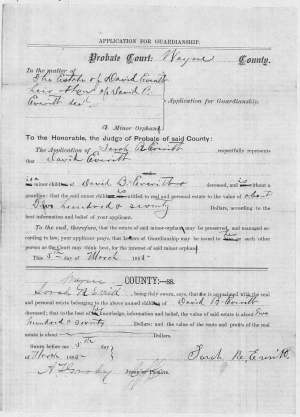 APPLICATION FOR GUARDIANSHIP.
Probate Court: Wayne County.
In the matter of
The Estate of David Everitt
of David B.
Everitt decd
Application for Guardianship.
A Minor Orphan
To the Honorable, the Judge of Probate of said County:
The Application of Sarah R Everitt respectfully represents
that David Everitt
is a minor child of David B. Everitt deceased, and is without a
guardian; that the said minor child is entitled to real and personal estate to the value of about
Two hundred & seventy Dollars, according to the
best information and belief of your applicant.
To the end, therefore, that the estate of said minor orphan may be preserved, and managed ac-
cording to law, your applicant prays, that letters of Guardianship may be issued to her or such other
person as the Court may think best, for the interest of said minor orphan
This 5th day of March 188
Wayne COUNTY:—ss.
Sarah R Everitt being duly sworn, says, that he is acquainted with the real
and personal estate belonging to the above named child of David B Everitt
deceased; that to the best of his knowledge, information and belief, the value of said estate is about two
hundred & seventy Dollars; and the value of the rents and profits of the real
estate is about Dollars.
Sworn before me 5th day
of March 188
Sarah R. Everitt
Judge of Probate.